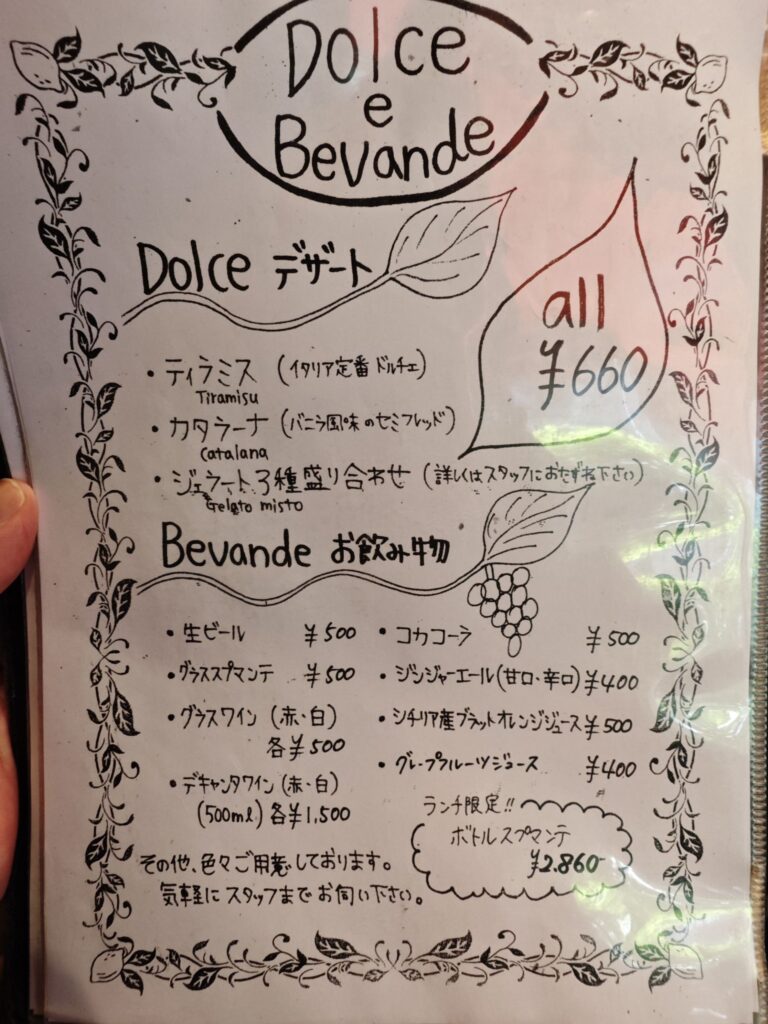 Dolce
e
Bevande
Dolce デザート
all
¥660
・ティラミス (イタリア定番ドルチェ)
Tiramisu
・カタラーナ (バニラ風味のセミフレッド)
Catalana
・ジェラート3種盛り合わせ (詳しくはスタッフにおたずね下さい)
Gelato misto
Bevande お飲み物
・生ビール ¥500
・グラススプマンテ ¥500
・グラスワイン (赤・白)
各¥500
・デキャンタワイン (赤・白)
(500ml) 各¥1,500
・コカコーラ ¥500
・ジンジャーエール(甘口・辛口) ¥400
・シチリア産ブラットオレンジジュース ¥500
・グレープフルーツジュース ¥400
ランチ限定!!
ボトルスプマンテ
¥2.860
その他、色々ご用意しております。
気軽にスタッフまでお伺い下さい。